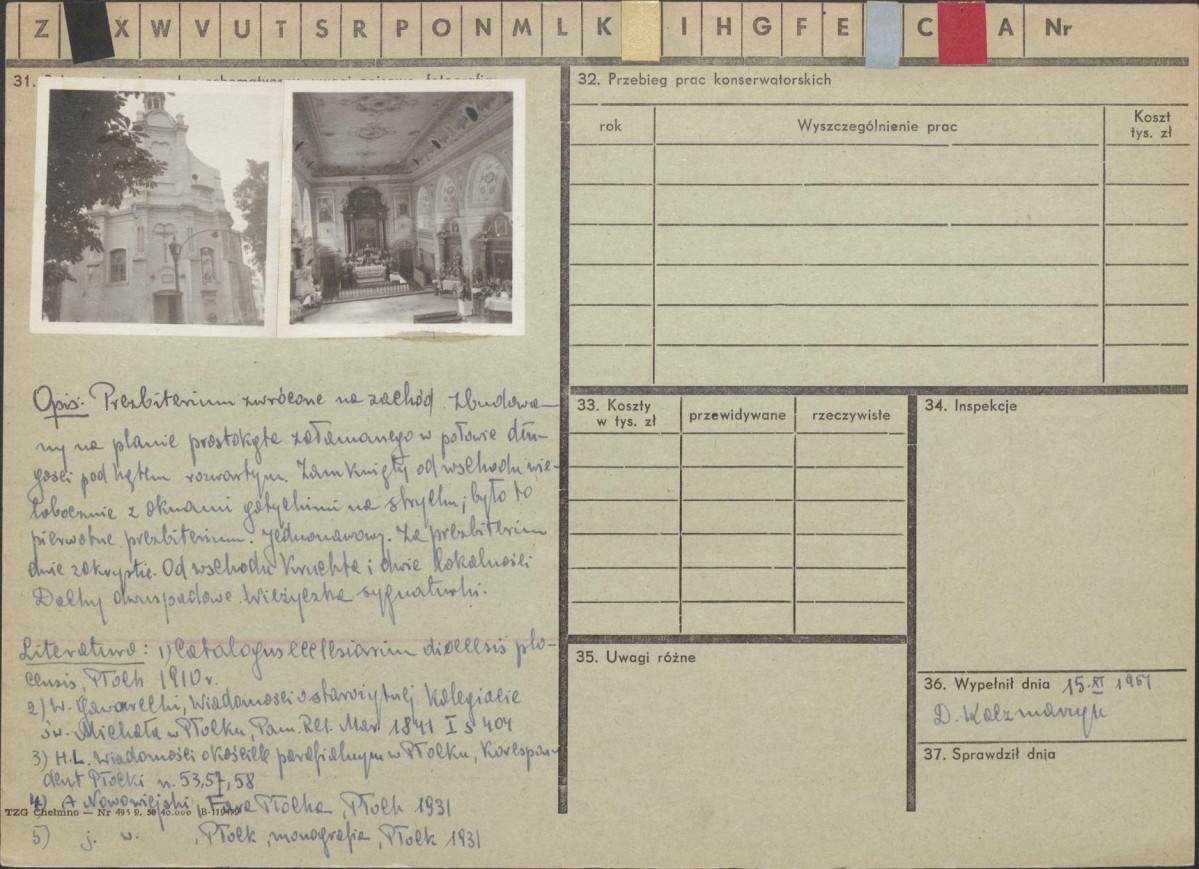 Z X W V U T S R P O N M L K I H G F E C A Nr
31.
Opis: Prezbiterium zwrócone na zachód. Zbudowa-
ny na planie prostokąta załamanego w połowie dłu-
gości pod kątem rozwartym. Zamknięty od wschodu wie-
lobocznie z oknami gotyckimi na strychu; było to
pierwotne prezbiterium. Jednonawowy. Za prezbiterium
dwie zakrystie. Od wschodu kruchta i dwie lokalności
Dachy dwuspadowe. Wieżyczka sygnaturki.
Literatura: 1) Catalogus ecclesiarum dioecesis plo-
censis, Płock 1910 r.
2) W. Gawarecki, Wiadomości o starożytnej kolegiacie
św. Michała w Płocku, Pam. Rel. Mor. 1841 I s 404
3) H.L. Wiadomości o kościele parafialnym w Płocku, Korespon-
dent Płocki n. 53, 57, 58
4) A Nowowiejski, Fara Płocka, Płock 1931
TZG Chełmno — Nr 495 9. 50 40.000
5) j. w. , Płock, monografia, Płock 1931
32. Przebieg prac konserwatorskich
rok Wyszczególnienie prac Koszt
tys. zł
33. Koszty
w tys. zł przewidywane rzeczywiste
34. Inspekcje
35. Uwagi różne
36. Wypełnił dnia 15.XI
D. Kaczmarzyk
37. Sprawdził dnia